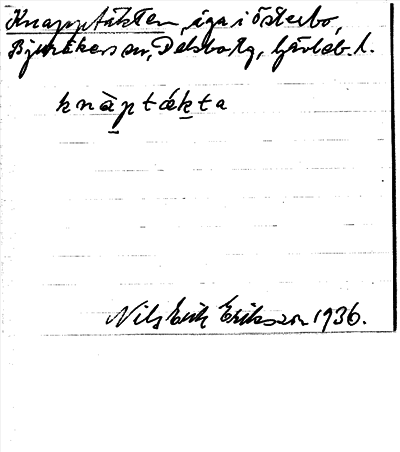 Knapptäkten, äga i Österbo,
Bjuråkers sn, Delsbo tg, Gävleb. l.
knàptákta
Nils Erik Eriksson 1936.